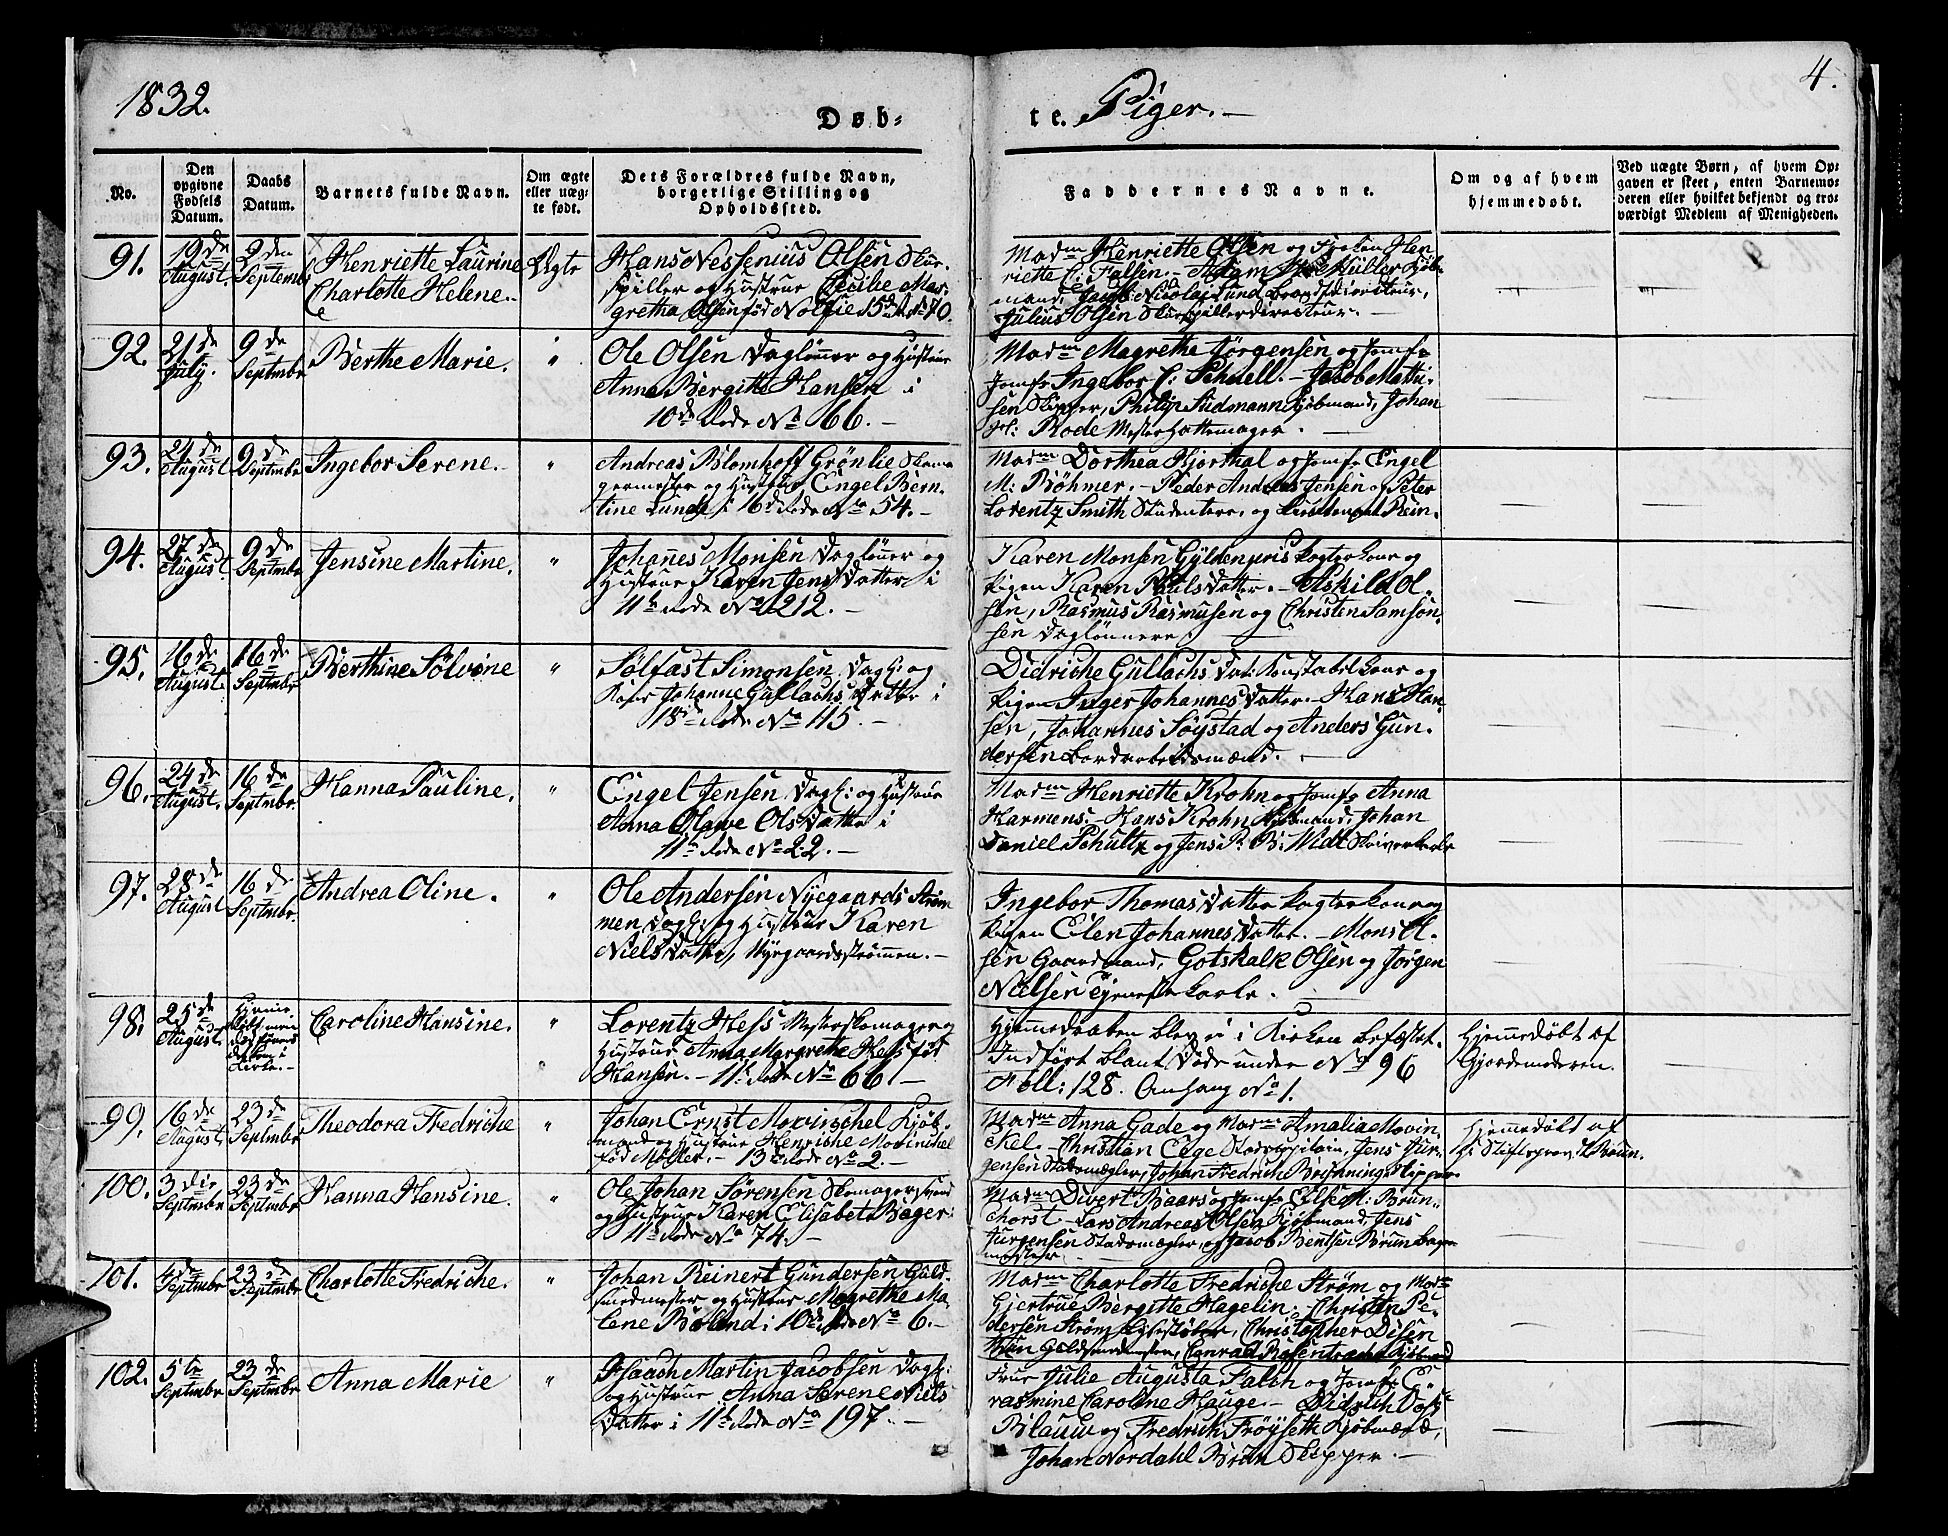 1832.
4.
Døb-
te. Piger.
No.
Den opgivne Fødsels Datum.
Daabs Datum.
Barnets fulde Navn.
Om ægte eller uægte født.
Dets Forældres fulde Navn, borgerlige Stilling og Opholdssted.
Faddernes Navne.
Om og af hvem hjemmedøbt.
Ved uægte Børn, af hvem Opgaven er skeet, enten Barnemoderen eller hvilket bekjendt og troværdigt Medlem af Menigheden.
91. 19de August. 2den Septembr Henriette Laurine Charlotte Helene. Ægte
Hans Nessenius Olsen Skue-
spiller og Hustrue Cecilie Mar-
gretha Olsen født
Madm Henriette Olsen og Frøken Hen
riette C: Falsen. - Adam Müller Kjøb-
mand, Nicolai Lund
Julius Olsen Skuespillerdirecteur. -
92. 21de July. 9de Septembr Berthe Marie. "
Ole Olsen Dagløner og Hustrue
Anna Bergitte Hansen i
10de Rode No 66. -
Madm Magrethe Jørgensen og Jomfr
Jomfr Ingebor C: Schnell. - Jacob Mathi-
sen Skipper, Philip Sudmann Kjøbmand, Johan
H: Rode Mester Hattemager.
93. 24de August 9de Septembr Ingebor Serene. - "
Andreas Blomhoff Grönlie Skoma
germester og Hustrue Engel Bern-
tine Lunde i 16de Rode No 54. -
Madm Dorthea Hjorthal og Jomfr Engel
M: Böhmer. - Peder Andreas Jensen og Peter
Lorentz Smith Studentere, og Lieutenant Rein.
94. 27de August. 9de Septembr Jensine Martine. "
Johannes Monsen Dagløner og
Hustrue Karen Jens Datter i
11te Rode No 212. -
Karen Monsen Gyldenpris Vogterkone og
Pigen Karen Pauls Datter. - Askild Ol-
sen, Rasmus Rasmusen og Christen Samson-
sen Daglønnere
95. 16de August. 16de Septembr Berthine Sølvine "
Sølfast Simonsen Dagl: og
Kone Johanne Gullachs Datter i
18de Rode No 115. -
Didriche Gullachs Dat: Konstabelkone og
Pigen Inger Johannes Datter. - Hans Han-
sen, Johannes Søystad og Anders Gun-
dersen Bordarbeidsmænd. -
96. 24de August. 16de Septembr. Hanna Pauline. "
Engel Jensen Dagl: og Hustrue
Anna Olawe Ols Datter i
11te Rode No 22. -
Madm Henriette Krohn og Jomfr Anna
Harmens. - Hans Krohn Kjøbmand, Johan
Daniel Schultz og Jens P: B: Widt
97. 28de August 16de Septembr. Andrea Oline. "
Ole Andersen Nyegaards Strøm
men Dagl: og Hustrue Karen
Niels Datter, Nyegaardsstrømmen. -
Ingebor Thomas Datter Vogterkone og
Pigen Elen Johannes Datter. - Mons Ol-
sen Gaardmand, Gotskalk Olsen og Jørgen
Nielsen Tjenestekarle.
98. 25de August. Caroline Hansine. "
Lorentz Hess Mesterskomager og
Hustrue Anna Margrethe Hess født
Hansen. - 11te Rode No 66. -
Hjemmedaaben blev ei i Kirken befæstet.
Indført blant Døde under No 96
Foll: 128. Anhang No 1.
Hjemmedøbt af
Gjordemoderen.
99. 16de August 23de Septembr Theodora Fredriche "
Johan Ernst Mowinchel Kjøb-
mand og Hustrue Henriche Mowinchel
født Møller. - 13de Rode No 2. -
Madm Anna Gade og Madm Amalia Mowin-
ckel. - Christian Ege Stadscapitain, Jens Jür-
gensen Stadsmægler, Johan Fredrich Skipper.
Hjemmedøbt af
Hr Stiftsprov. N. Bruun.
100. 3die Septembr 23de Septembr Hanna Hansine. "
Ole Johan Sørensen Skomagersvend
og Hustrue Karen Elisabet Bøger:
11te Rode No 74. -
Madm Divert Baars og Jomfr M: Brun-
chorst. - Lars Andreas Olsen Kjøbmand, Jens
Jürgensen Stadsmægler, og Jacob Bentsen Brun Bager
mester
101. 4de Septembr 23de Septembr Charlotte Fredriche. "
Johan Reinert Gundersen Guld-
smedmester og Hustrue Magrethe Ma-
lene Børland i 10de Rode No 6. -
Madm Charlotte Fredriche Strøm og Madm
Gjertrue Bergitte Hagelin. - Christen Pe-
dersen Strøm Christopher
Guldsmedmester, Conrad
102. 5te Septembr 23de Septembr Anna Marie "
Isaach Martin Jacobsen Dagl:
og Hustrue Anna Serene Niels
Datter i 11te Rode No 197. -
Frue Julie Augusta Falch og Jomfr E-
rasmine Caroline Hauge. - Didrich
Blauw og Fredrich Frøyseth Kjøbmænd,
Johan Nordahl Brun Skipper. -